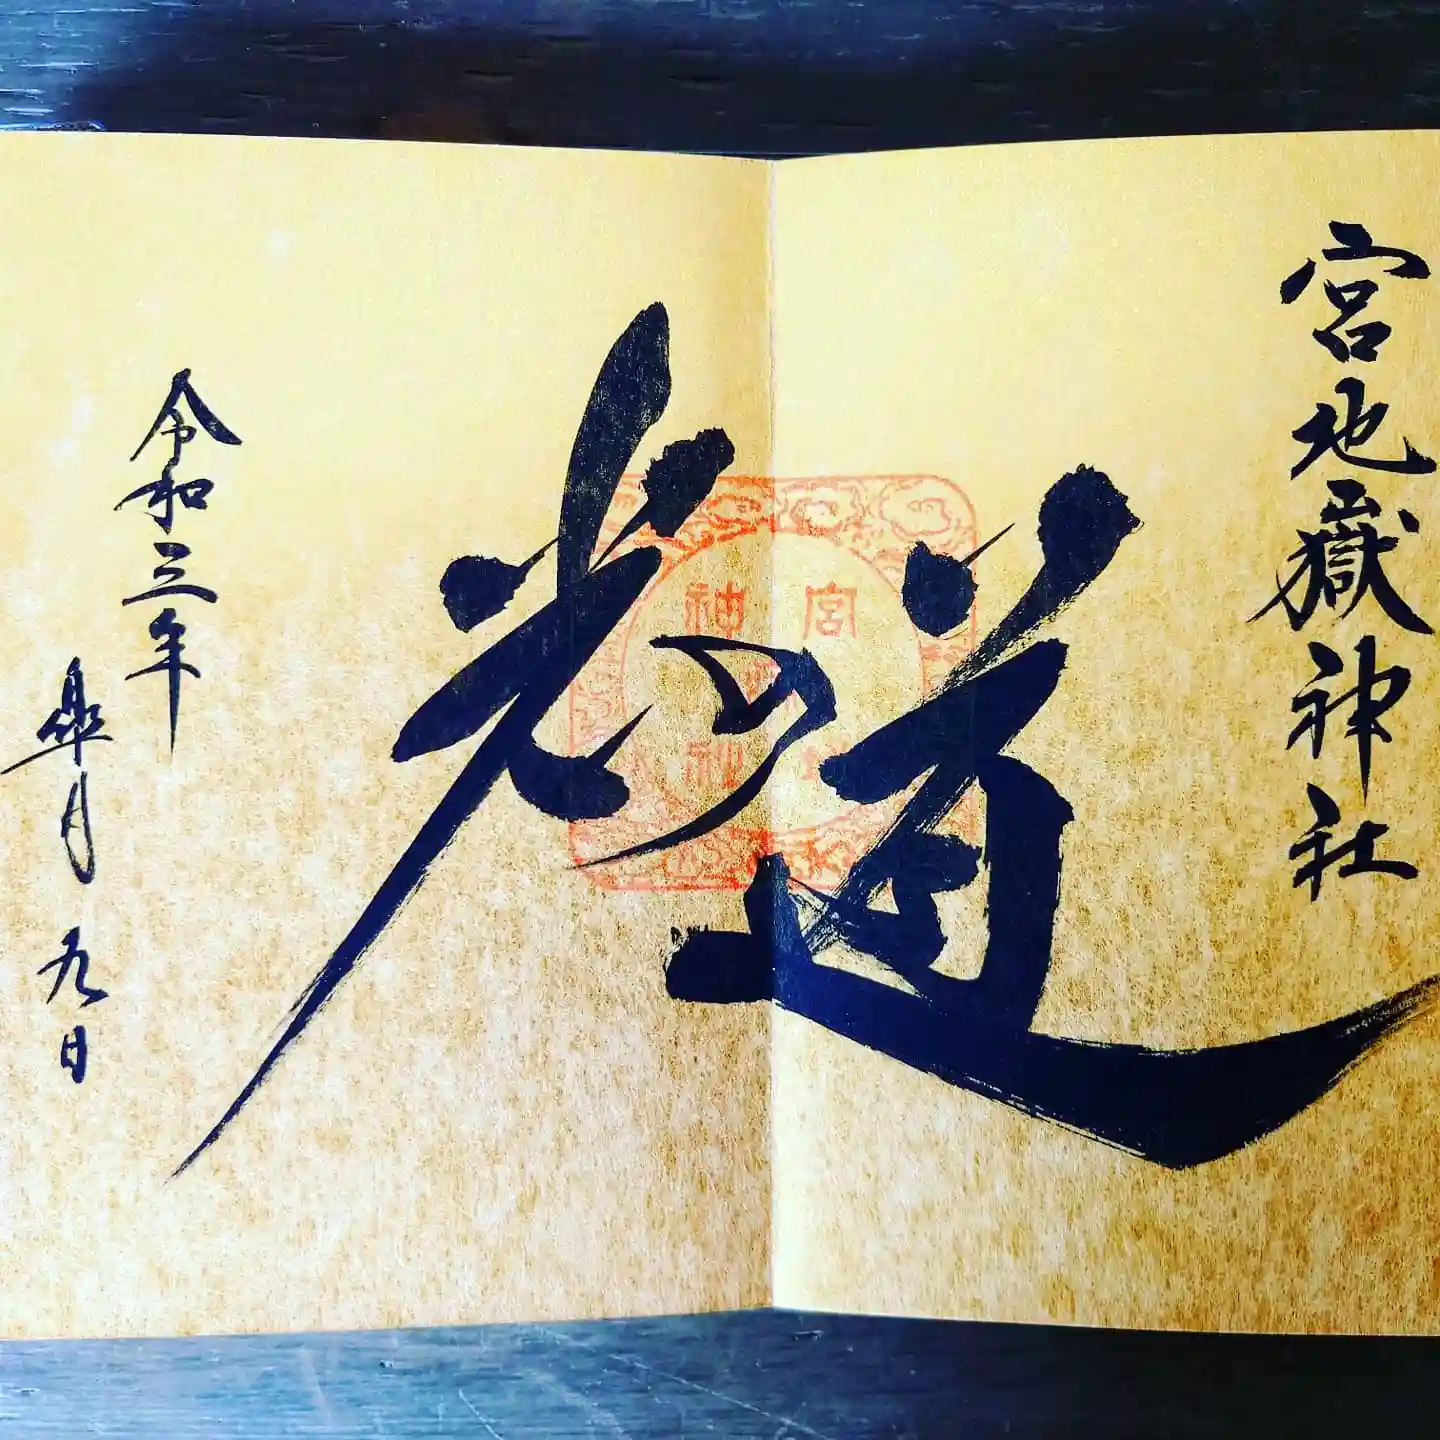 宮地嶽神社
光の道
宮
神社
令和三年
皐月 九日